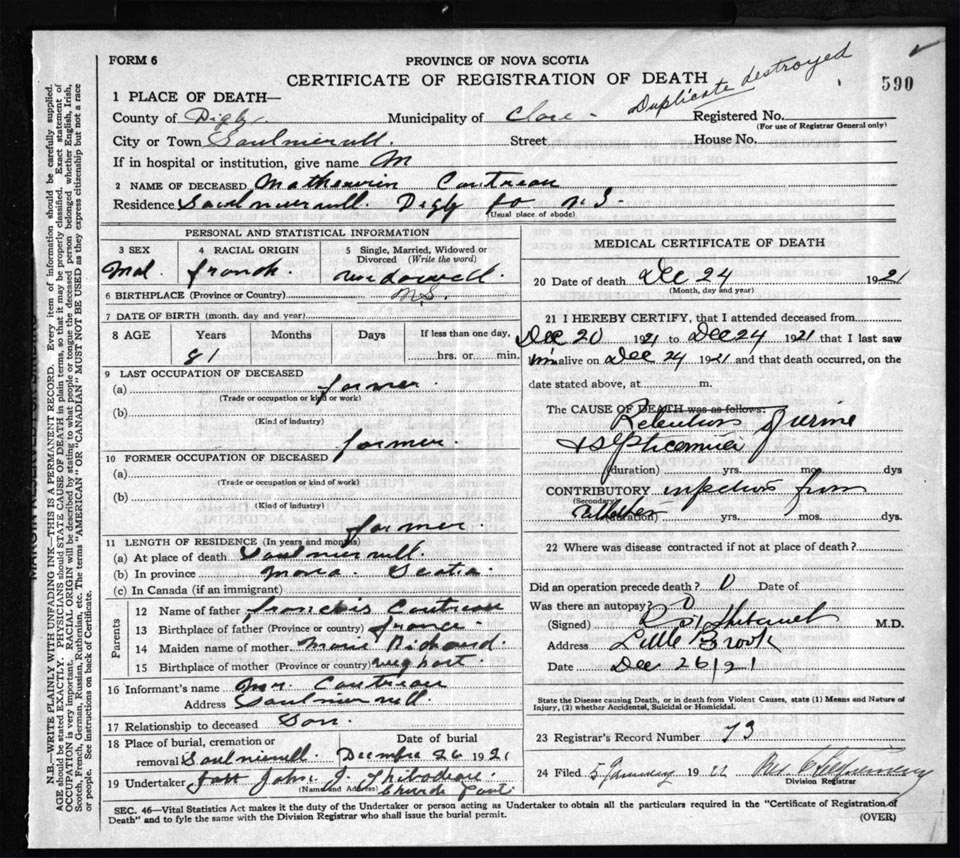 FORM 6
PROVINCE OF NOVA SCOTIA
CERTIFICATE OF REGISTRATION OF DEATH
Duplicate destroyed
590
1 PLACE OF DEATH—
County of Digby. Municipality of Clare - Registered No.
(For use of Registrar General only)
City or Town Saulnierville Street House No.
If in hospital or institution, give name
2 NAME OF DECEASED
Residence Saulnierville. Digby Co N S.
(Usual place of abode)
PERSONAL AND STATISTICAL INFORMATION
3 SEX
Mal.
4 RACIAL ORIGIN
franch.
5 Single, Married, Widowed or Divorced (Write the word)
6 BIRTHPLACE (Province or Country) N.S.
7 DATE OF BIRTH (month, day and year)
8 AGE Years Months Days If less than one day,
81 hrs. or min.
9 LAST OCCUPATION OF DECEASED
(a) farmer.
(Trade or occupation or kind or work)
(b)
(Kind of industry)
farmer.
10 FORMER OCCUPATION OF DECEASED
(a)
(Trade or occupation or kind of work)
(b)
(Kind of industry)
farmer.
11 LENGTH OF RESIDENCE (In years and months)
(a) At place of death Saulnierville.
(b) In province Nova. Scotia.
(c) In Canada (if an immigrant)
Parents
12 Name of father Comeau
13 Birthplace of father (Province or country) france.
14 Maiden name of mother
15 Birthplace of mother (Province or country)
16 Informant's name Mr.
Address Saulnierville.
17 Relationship to deceased Son.
18 Place of burial, cremation or removal Saulnierville. Date of burial 26 1921
19 Undertaker John J. Thibodeau.
(Name and Address) Church Point
MEDICAL CERTIFICATE OF DEATH
20 Date of death Dec 24 1921
(Month, day and year)
21 I HEREBY CERTIFY, that I attended deceased from
Dec 20 1921 to Dec 24 1921 that I last saw
him alive on Dec 24 1921 and that death occurred, on the
date stated above, at m.
The CAUSE OF DEATH was as follows:
Retention of urine
+ septicemia
(duration) yrs. mos. dys
CONTRIBUTORY infection from
(Secondary)
(duration) yrs. mos. dys.
22 Where was disease contracted if not at place of death?
Did an operation precede death? 0 Date of
Was there an autopsy? 0
(Signed) M.D.
Address Little Brook
Date Dec 26/21
State the Disease causing Death, or in death from Violent Causes, state (1) Means and Nature of Injury, (2) whether Accidental, Suicidal or Homicidal.
23 Registrar's Record Number 73
24 Filed 5 January 1922
Division Registrar
SEC. 46—Vital Statistics Act makes it the duty of the Undertaker or person acting as Undertaker to obtain all the particulars required in the "Certificate of Registration of
Death" and to fyle the same with the Division Registrar who shall issue the burial permit.
(OVER)
N.B.—WRITE PLAINLY WITH UNFADING INK—THIS IS A PERMANENT RECORD. Every item of information should be carefully supplied.
AGE should be stated EXACTLY. PHYSICIANS should STATE CAUSE OF DEATH in plain terms, so that it may be properly classified. Exact statement of
OCCUPATION is very important. RACIAL ORIGIN will be described by stating to what people or tongue the deceased person belonged whether English, Irish,
Scotch, French, German, Russian, Ruthenian, etc. The terms "AMERICAN" OR "CANADIAN" MUST NOT BE USED as they express citizenship but not a race
or people. See instructions on back of Certificate.